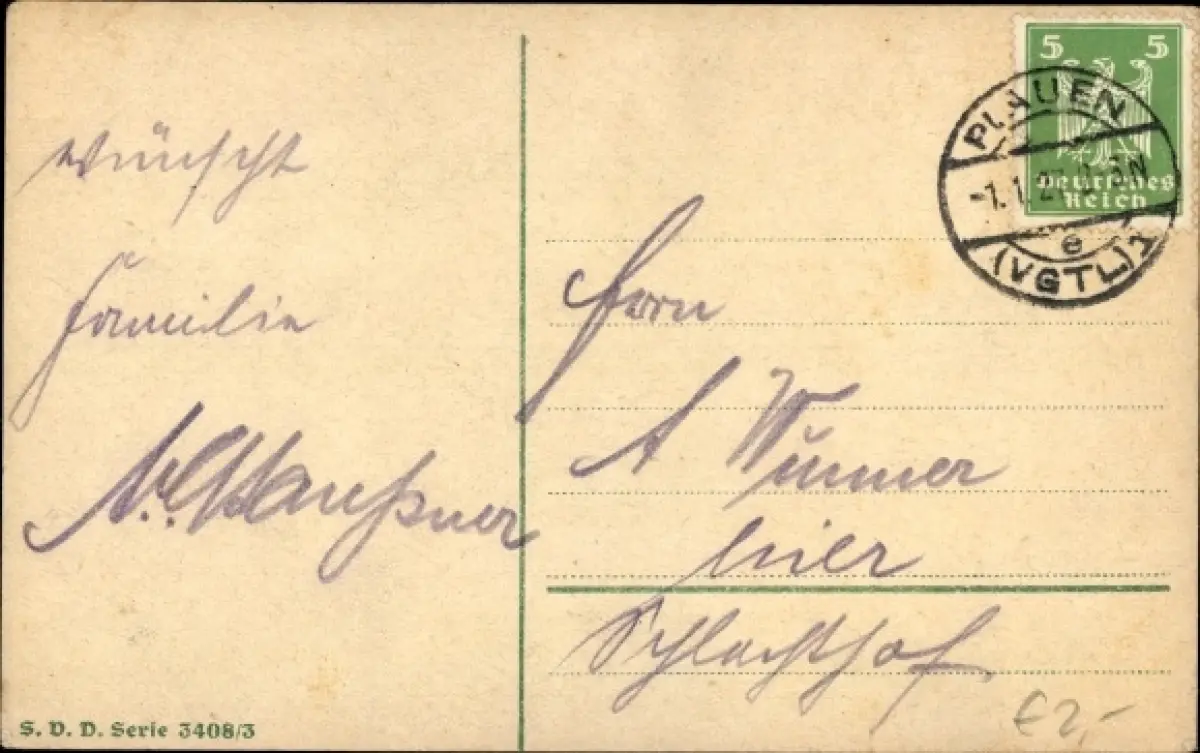 wünscht
Familie
5 5
Deutsches
Reich
PLAUEN
-1.1.27. 3-5N
e
(VGTL) 1
Herrn
A Wimmer
hier
Schlachthof
€ 2,-
S. V. D. Serie 3408/3